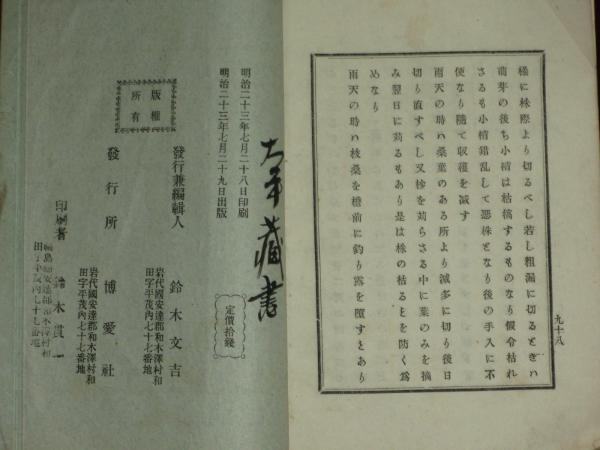 様に株際より切るべし若し粗漏に切るときハ
萌芽の後ち小梢は枯稿するものなり假令枯れ
さるも小梢錯乱して悪株となり後の手入に不
便なり隨て収穫を減す
雨天の時ハ桑葉のある所より減多に切り後日
切り直すべし又枝を苅らさる中に葉のみを摘
み翌日に苅るもあり是は株の枯るゝを防く為
めなり
雨天の時ハ枝桑を檐前に釣り露を堕すとあり
九十八
明治二十三年七月二十八日印刷
明治二十三年七月二十九日出版
定價拾錢
藏書
發行兼編輯人 鈴木文吉
岩代國安達郡和木澤村和
田字平茂内七十七番地
發行所 博愛社
岩代國安達郡和木澤村和
田字平茂内七十七番地
版權
所有
印刷者 鈴木貫一
福島縣安達郡和木澤村和
田字平茂内七十七番地